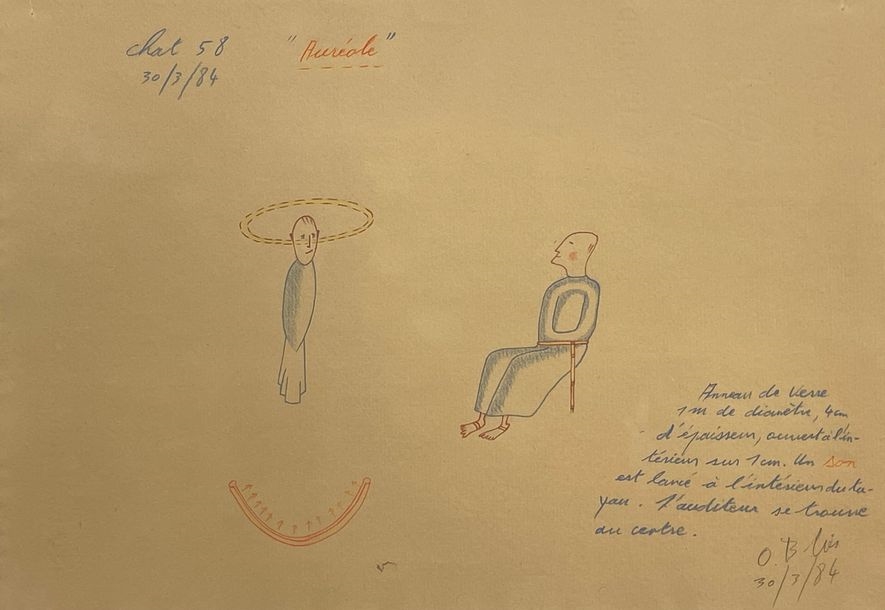 chat 58
30/3/84
"Auréole"
Anneau de verre
1m de diamètre, 4cm
d'épaisseur, ouvert à l'in-
térieur sur 1cm. Un son
est lancé à l'intérieur du tu-
yau. L'auditeur se trouve
au centre.
30/3/84